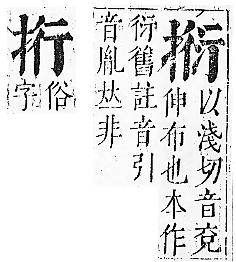 以淺切音兗
伸布也本作
衍舊註音引
音胤𠀤非
俗
字